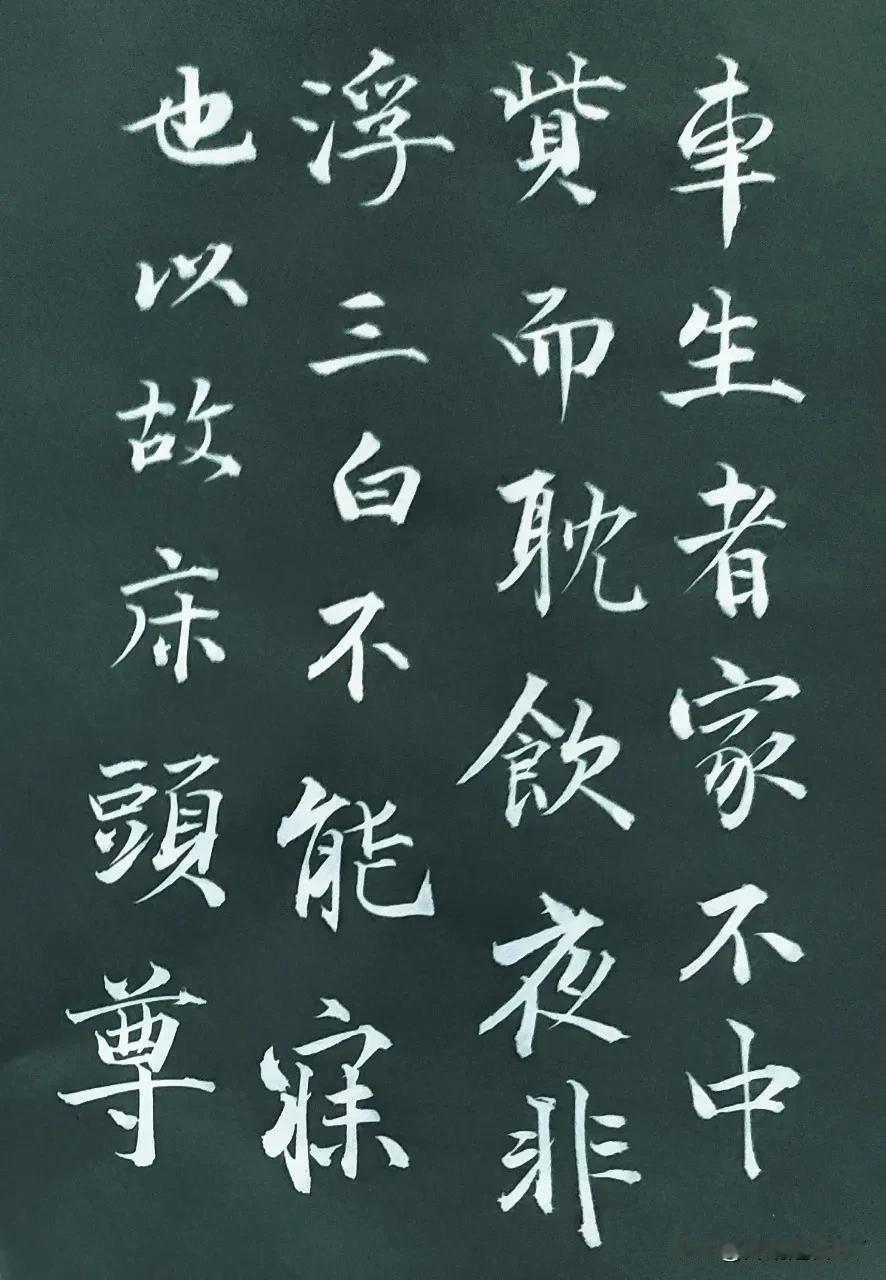 車生者家不中
貲而耽飲夜非
浮三白不能寐
也以故床頭尊